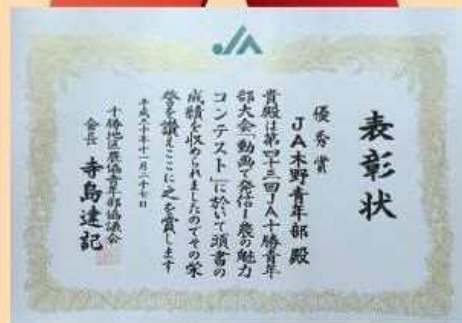 JA
表彰状
優秀賞
JA木野青年部 殿
貴殿は第四十三回JA十勝青年
部大会「動画で発信!農の魅力
コンテスト」に於いて頭書の
成績を収められましたのでその栄
誉を讃えここに之を賞します
平成三十年十一月二十七日
十勝地区農協青年部協議会
会長 寺島達記